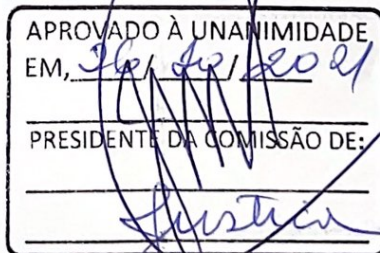 APROVADO À UNANIMIDADE
EM, 26/10/2021
PRESIDENTE DA COMISSÃO DE:
Justiça